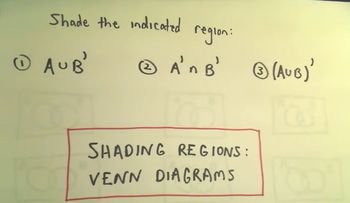 Shade the indicated region:
① A∪B' ② A'∩B' ③ (A∪B)'
SHADING REGIONS:
VENN DIAGRAMS